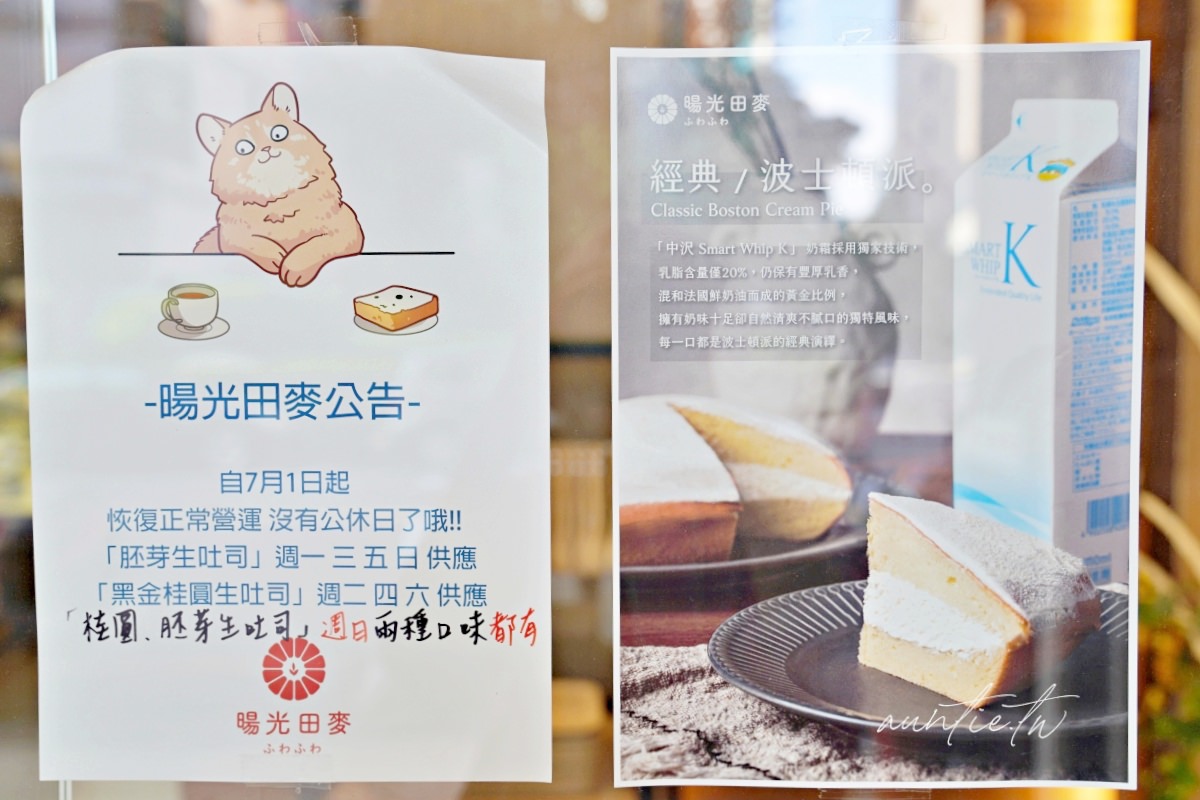 -暘光田麥公告-
自7月1日起
恢復正常營運 沒有公休日了哦!!
「胚芽生吐司」週一 三 五 日 供應
「黑金桂圓生吐司」週二 四 六 供應
「桂圓、胚芽生吐司」週日兩種口味都有
暘光田麥
ふわふわ
暘光田麥
ふわふわ
經典 / 波士頓派。
Classic Boston Cream Pie
「中沢 Smart Whip K」 奶霜採用獨家技術，
乳脂含量僅20%，仍保有豐厚乳香，
混和法國鮮奶油而成的黃金比例，
擁有奶味十足卻自然清爽不膩口的獨特風味，
每一口都是波士頓派的經典演繹。
SMART
WHIP K
auntie.tw